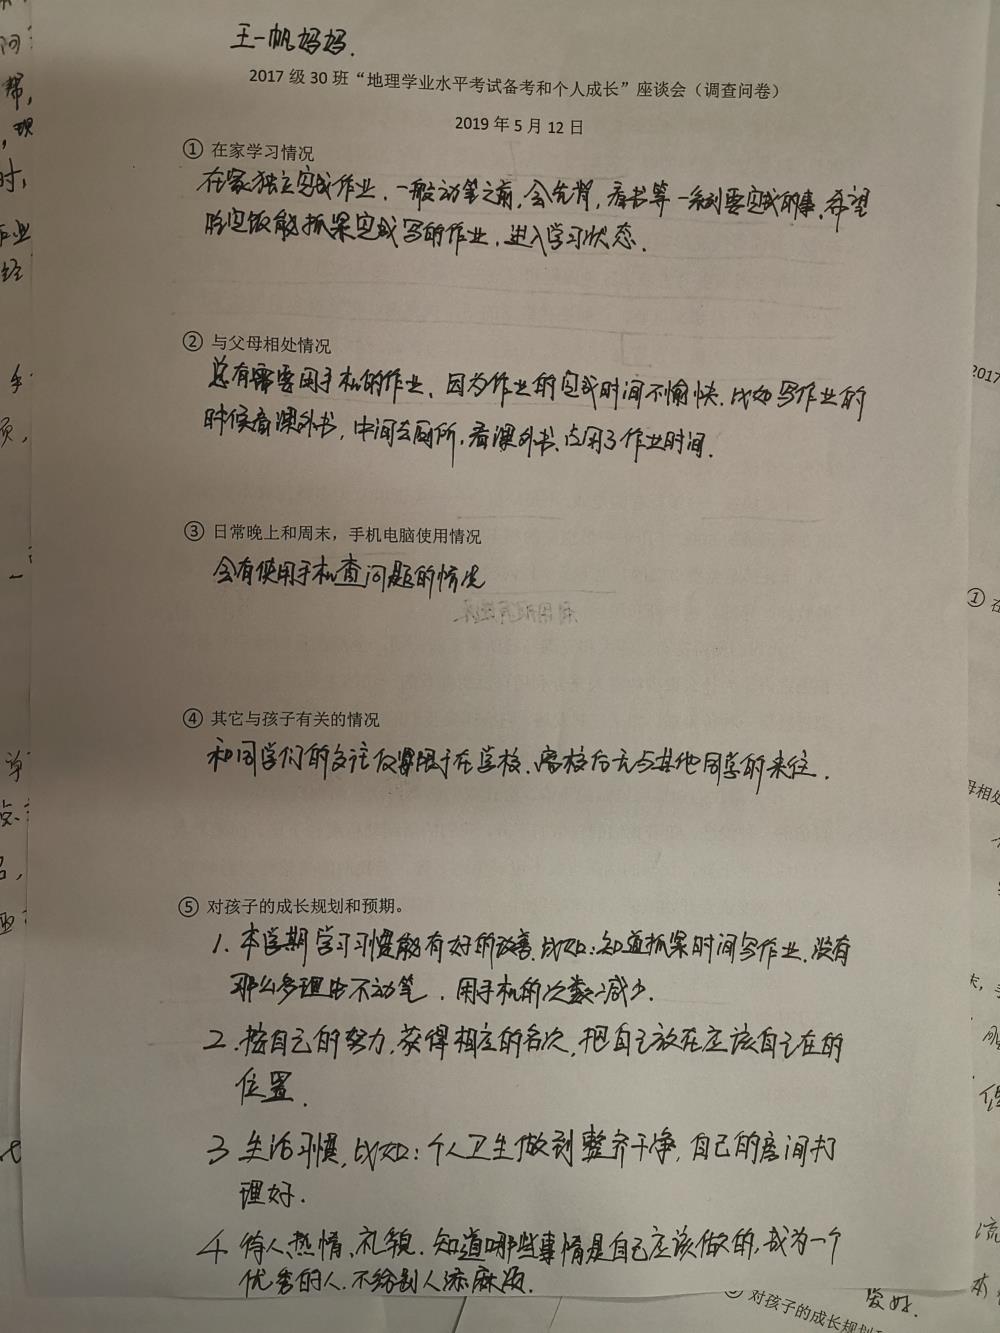 王一帆妈妈.
2017 级 30 班“地理学业水平考试备考和个人成长”座谈会（调查问卷）
2019 年 5 月 12 日
① 在家学习情况
在家独立完成作业，一般动笔之前，会先背，看书等一系列要完成的事，希望
吃完饭能抓紧完成写的作业，进入学习状态．
② 与父母相处情况
总有需要用手机的作业、因为作业的完成时间不愉快．比如写作业的
时候看课外书，中间去厕所，看课外书、占用了作业时间．
③ 日常晚上和周末，手机电脑使用情况
会有使用手机查问题的情况
④ 其它与孩子有关的情况
和同学们的交往仅限于在学校、离校后无与其他同学的来往．
⑤ 对孩子的成长规划和预期。
1. 本学期学习习惯能有好的改善．比如：知道抓紧时间写作业．没有
那么多理由不动笔．用手机的次数减少．
2. 按自己的努力，获得相应的名次，把自己放在应该自己在的
位置．
3 生活习惯，比如：个人卫生做到整齐干净，自己的房间打
理好．
4 待人热情、礼貌．知道哪些事情是自己应该做的，成为一个
优秀的人．不给别人添麻烦．
爱好．
③ 对孩子的成长规划